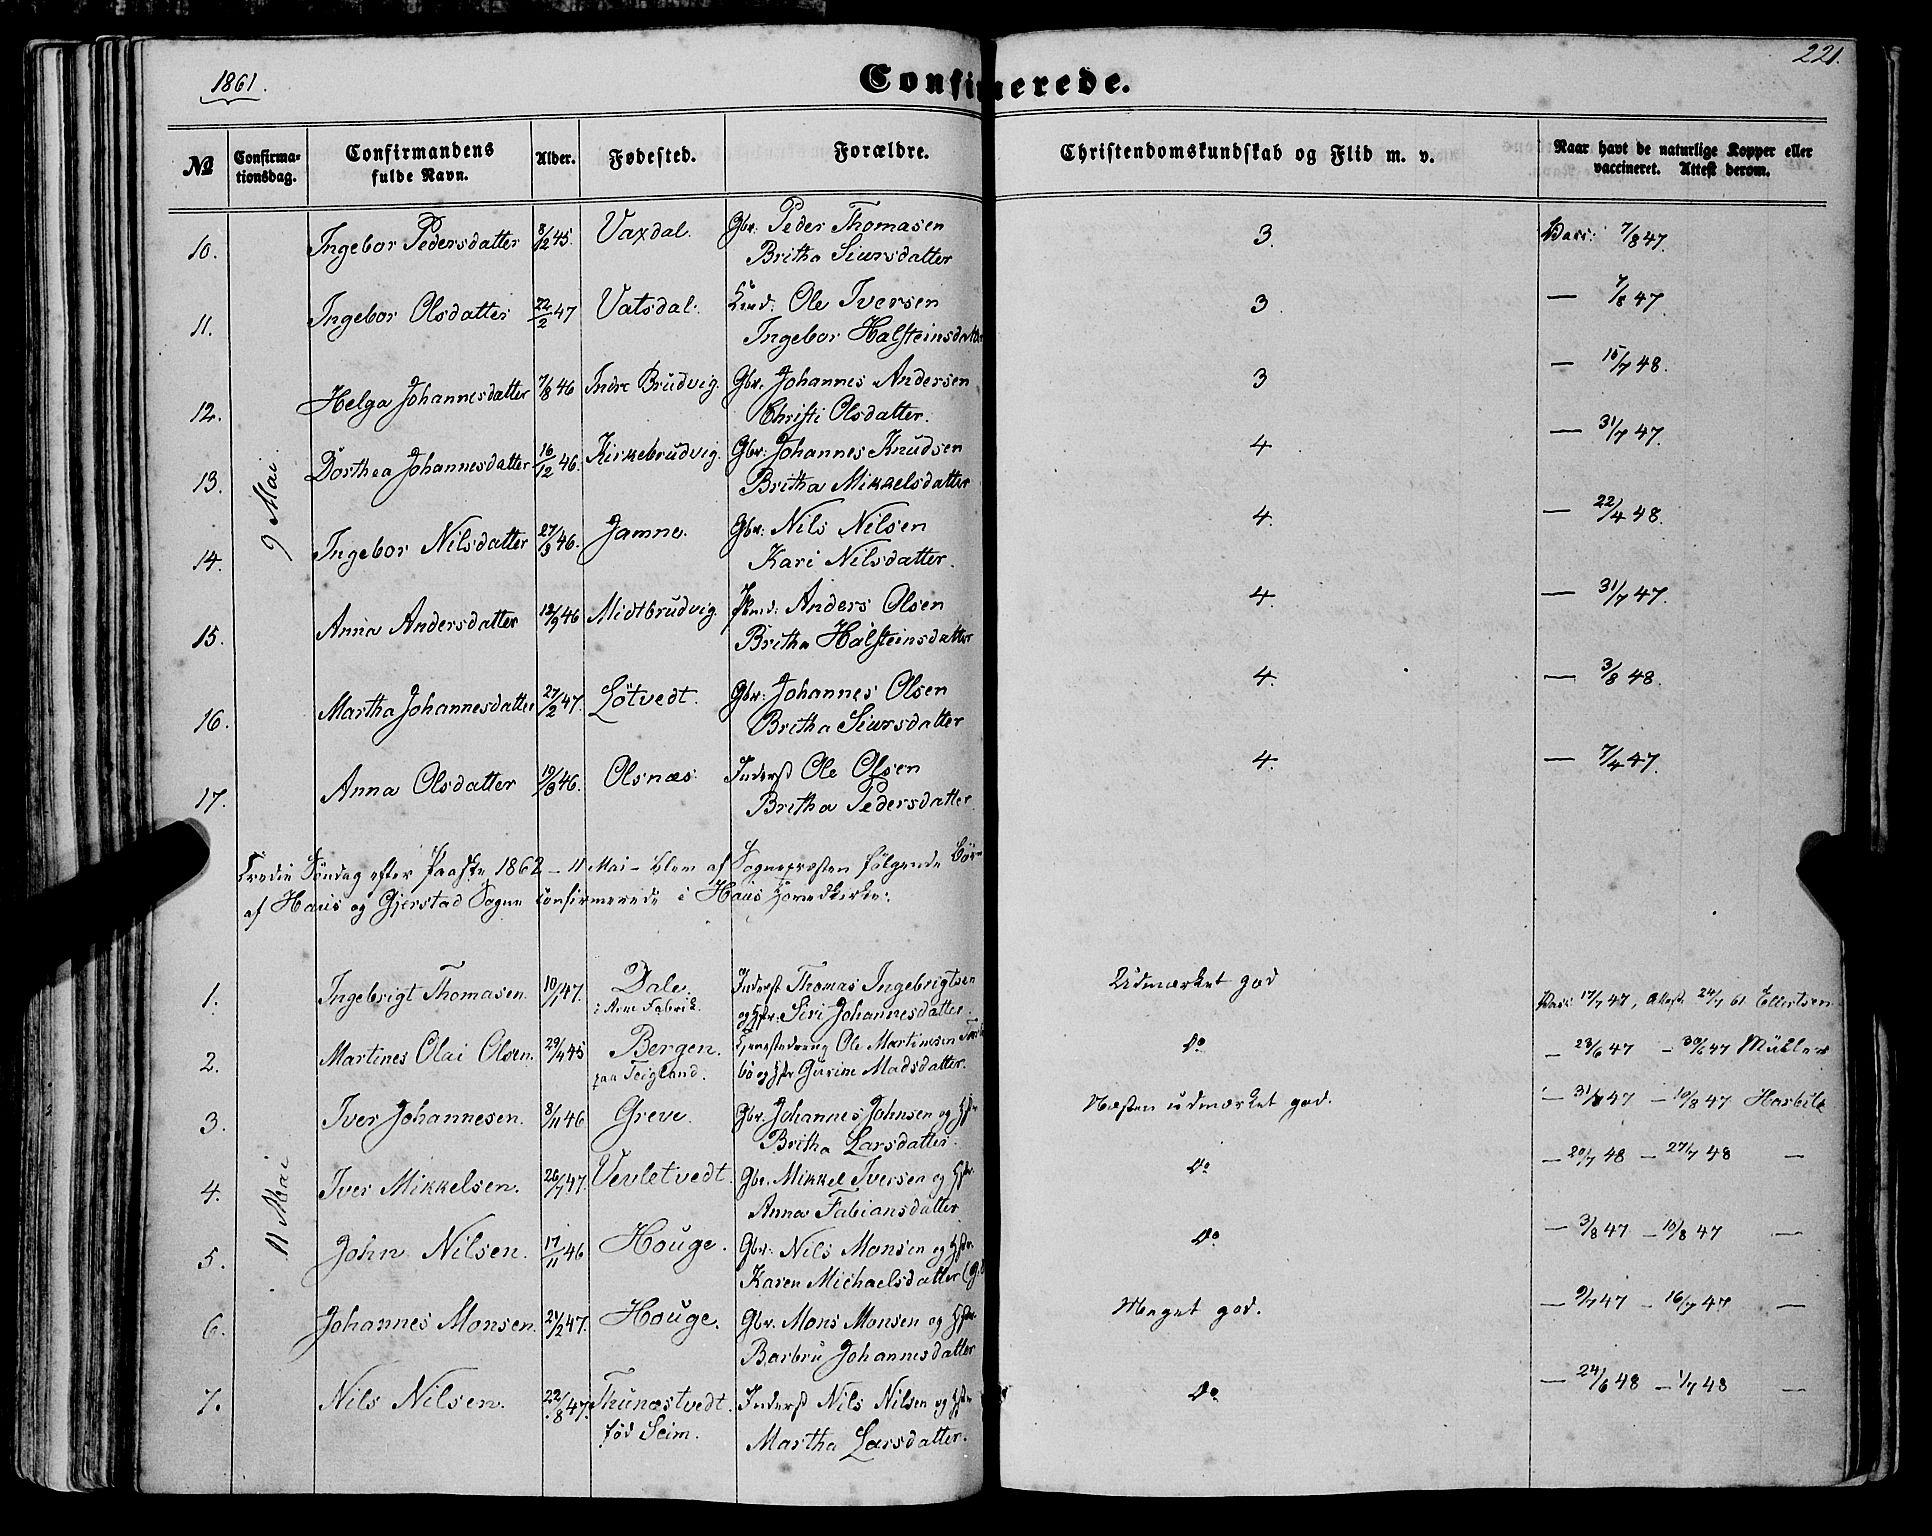 1861.
Confirmerede.
221.
No
Confirma-
tionsdag.
Confirmandens
fulde Navn.
Alder.
Fødested.
Forældre.
Christendomskundskab og Flid m. v.
Naar havt de naturlige Kopper eller
vaccineret. Attest derom.
9 Mai.
10. Ingebor Pedersdatter 8/12 45. Vaxdal. Gbr. Peder Thomasen 3. Vacc: 7/8 47.
Britha Siursdatter
11. Ingebor Olsdatter 22/2 47 Vatsdal. Ole Iversen 3 — 7/8 47
Ingebor Halsteinsdatter
12. Helga Johannesdatter 7/8 46 Indre Brudvig. Gbr. Johannes Andersen 3 — 15/7 48.
Christi Olsdatter.
13. Dorthea Johannesdatter 16/12 46. Kirkebrudvig. Gbr: Johannes Knudsen 4 — 31/7 47.
Britha Mikkelsdatter
14. Ingebor Nilsdatter 27/9 46. Jamne. Gbr: Nils Nilsen 4. — 22/4 48.
Kari Nilsdatter.
15. Anna Andersdatter 12/9 46 Midtbrudvig. Anders Olsen 4. — 31/7 47.
Britha Halsteinsdatter
16. Martha Johannesdatter 27/2 47. Løtvedt. Gbr: Johannes Olsen 4. — 3/8 48.
Britha Siursdatter
17. Anna Olsdatter 19/8 46. Olsnæs. Inderst Ole Olsen 4. — 7/4 47.
Britha Pedersdatter
Tredie Søndag efter Paaske 1862 – 11 Mai – blev af Sognepræsten følgende Børn
af Haus og Gjerstad Sogne confirmerede i Haus Hovedkirke:
11 Mai
1. Ingebrigt Thomasen. 10/1 47. Dale. Inderst Thomas Ingebrigtsen Udmærket god
i Arne Fabrik. og Hstr. Siri Johannesdatter. Vacc: 17/7 47, Attest 24/7 61 Ellertsen
2. Martines Olai Olsen. 29/4 45 Bergen. Tjenestedreng Ole Martinsen Do — 23/6 47 — 30/6 47 Müller
paa Teigland. bö og Hstr Gurine Madsdatter.
3. Iver Johannesen. 8/11 46 Greve. Gbr. Johannes Johnsen og Hstr Næsten udmærket god. — 31/7 47 — 10/8 47
Britha Larsdatter.
4. Iver Mikkelsen. 26/7 47. Vevletvedt. Gbr. Mikkel Iversen og Hstr. Do — 20/7 48 — 27/7 48 —
Anna Fabiansdatter
5. John Nilsen. 17/11 46 Houge. Gbr. Nils Monsen og Hstr. Do — 3/8 47 — 10/8 47 —
Karen Michaelsdatter
6. Johannes Monsen. 21/2 47. Houge. Gbr. Mons Monsen og Hstr. Meget god. — 9/7 47 — 16/7 47 —
Barbru Johannesdatter
7. Nils Nilsen. 22/8 47. Thunæstvedt. Inderst Nils Nilsen og Hstr Do — 24/6 48 — 1/7 48 —
fød Seim. Martha Larsdatter.